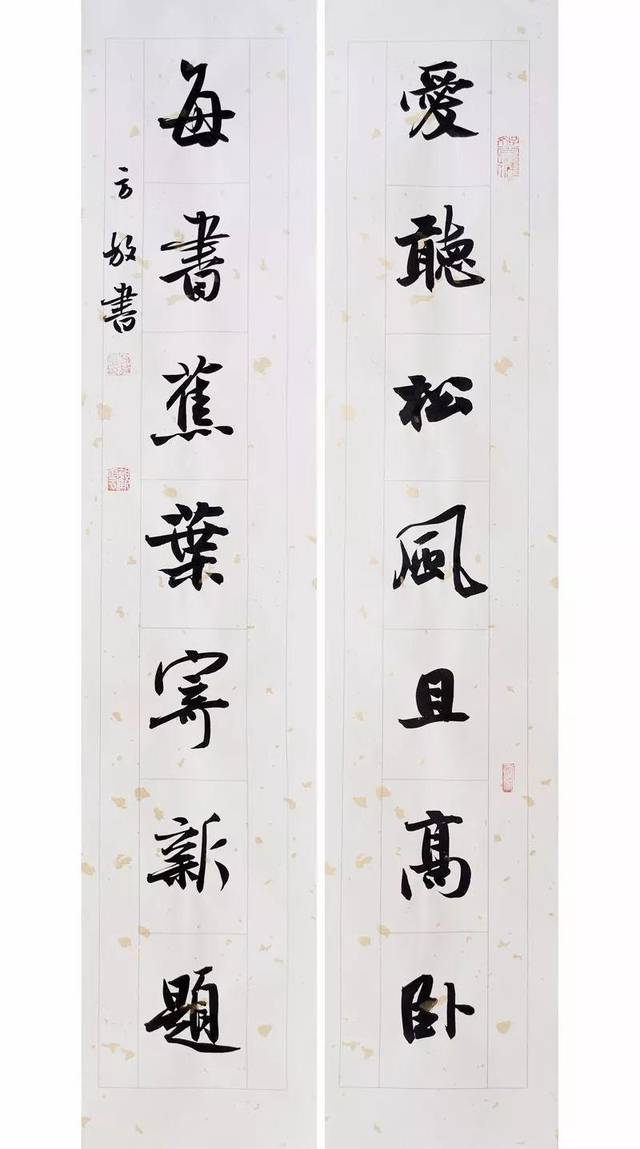 愛聽松風且高臥
每書蕉葉寄新題
方放書